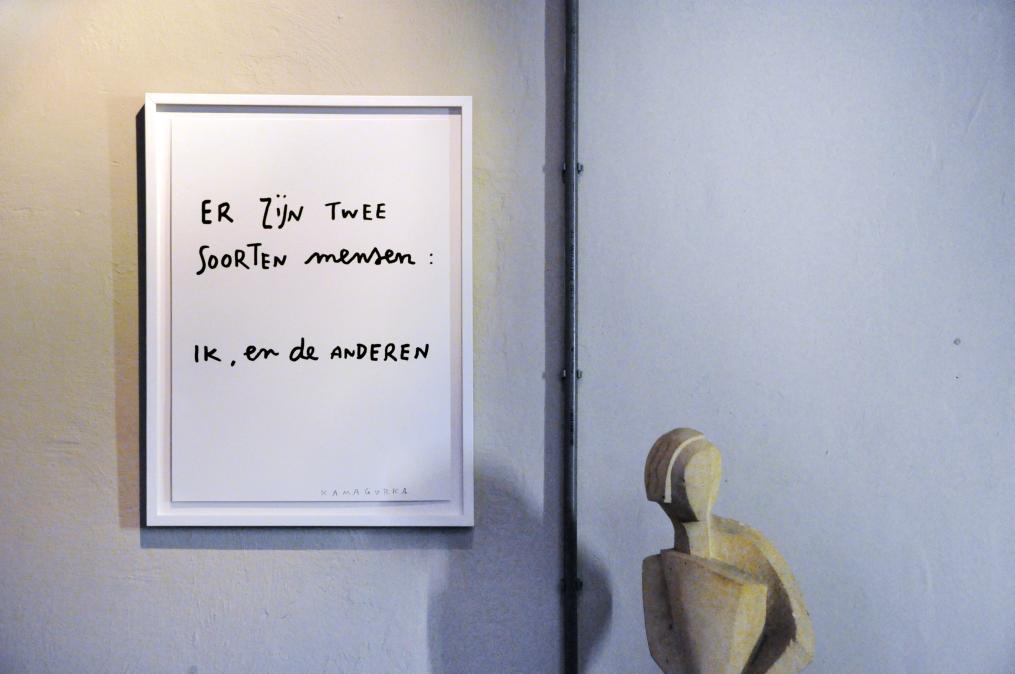 ER ZIJN TWEE
SOORTEN mensen :
IK, en de ANDEREN
KAMAGURKA